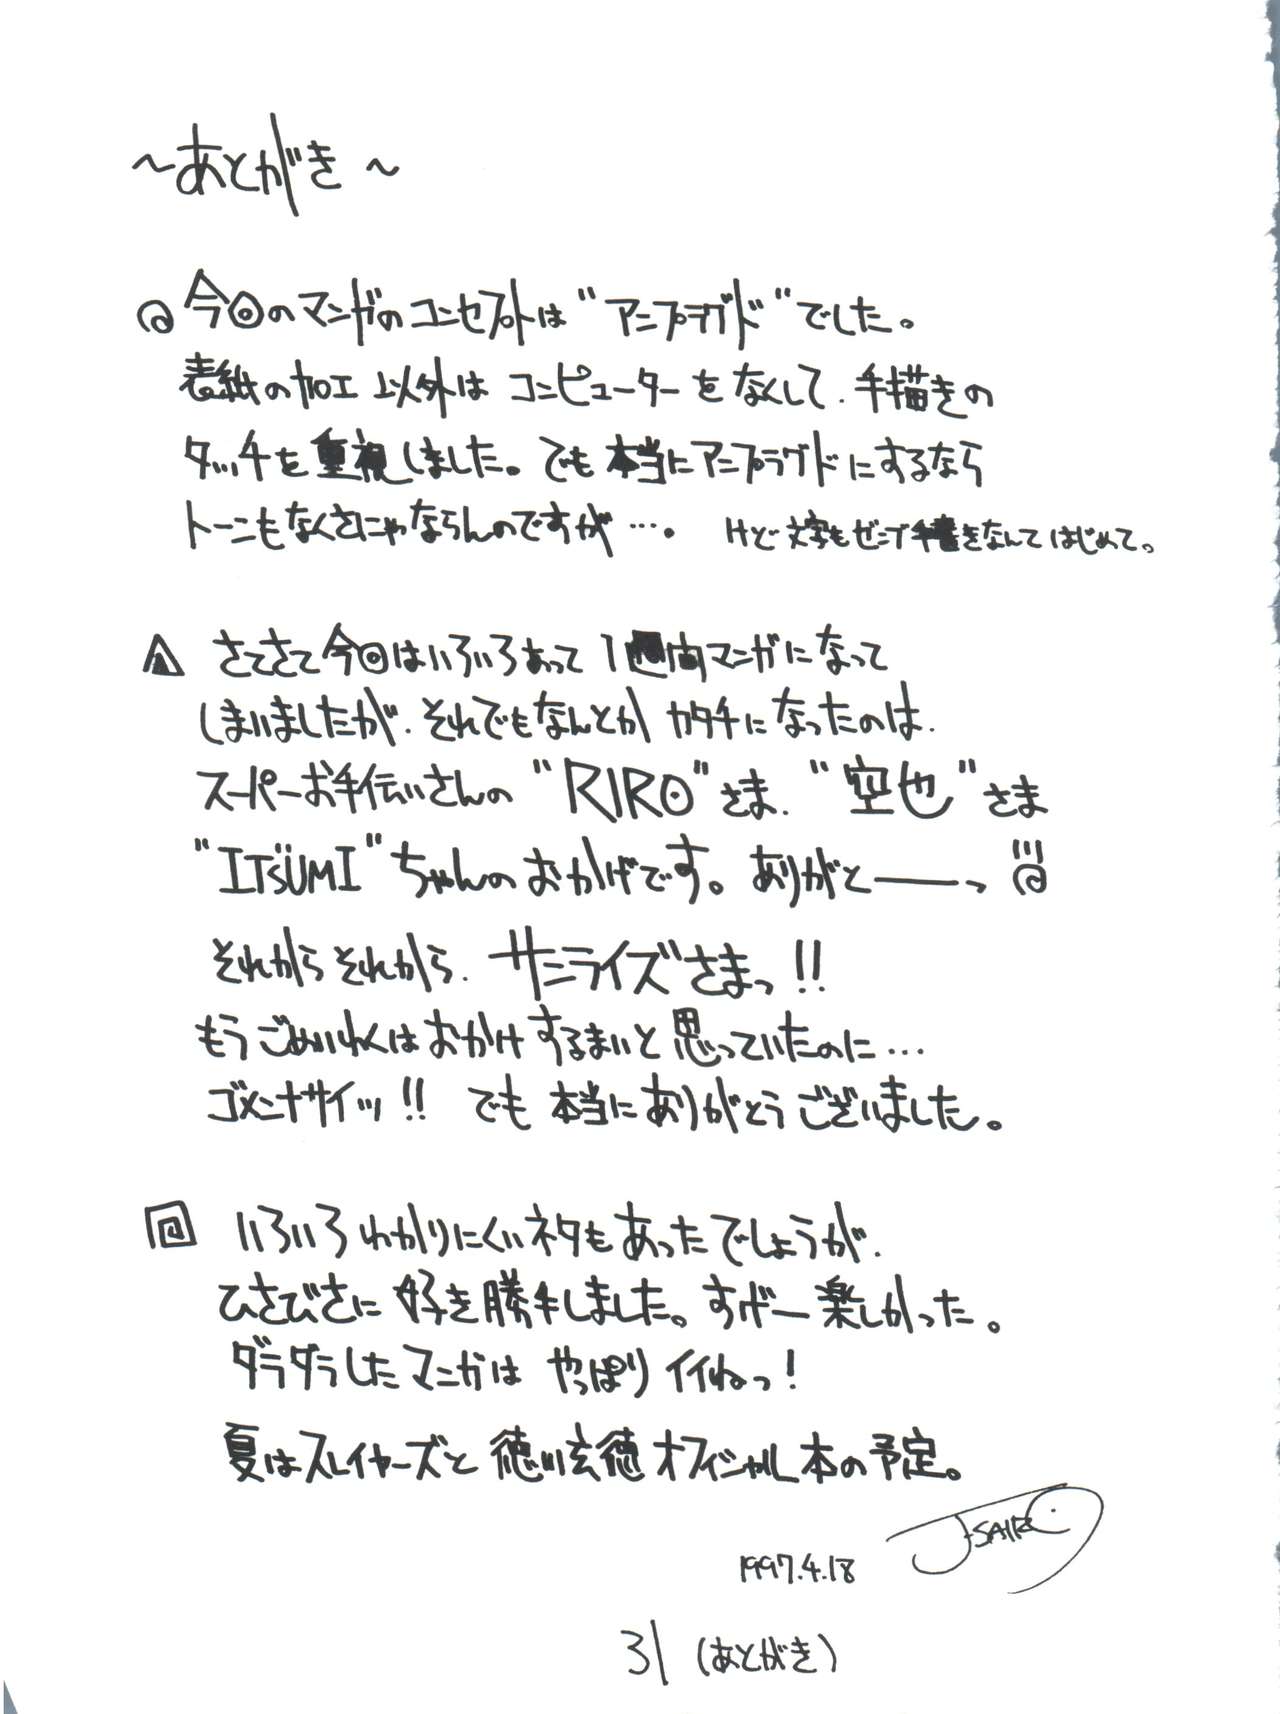 ～あとがき～
今回のマンガのコンセプトは"アンプラグド"でした。
表紙の加工以外はコンピューターをなくして、手描きの
タッチを重視しました。でも本当にアンプラグドにするなら
トーンもなくさにゃならんのですが…。けど文字もゼンブ手書きなんてはじめて。
さてさて今回はいろいろあって1週間マンガになって
しまいましたが、それでもなんとかカタチになったのは、
スーパーお手伝いさんの"RIRO"さま、"空也"さま
"ITSUMI"ちゃんのおかげです。ありがと――っ!!!
それからそれから、サンライズさまっ!!
もうごめいわくはおかけするまいと思っていたのに…
ゴメンナサイッ!! でも本当にありがとうございました。
いろいろわかりにくいネタもあったでしょうが、
ひさびさに好き勝手しました。すげー楽しかった。
ダラダラしたマンガはやっぱりイイねっ!
夏はスレイヤーズと徳川玄徳オフィシャル本の予定。
1997.4.18
31 (あとがき)